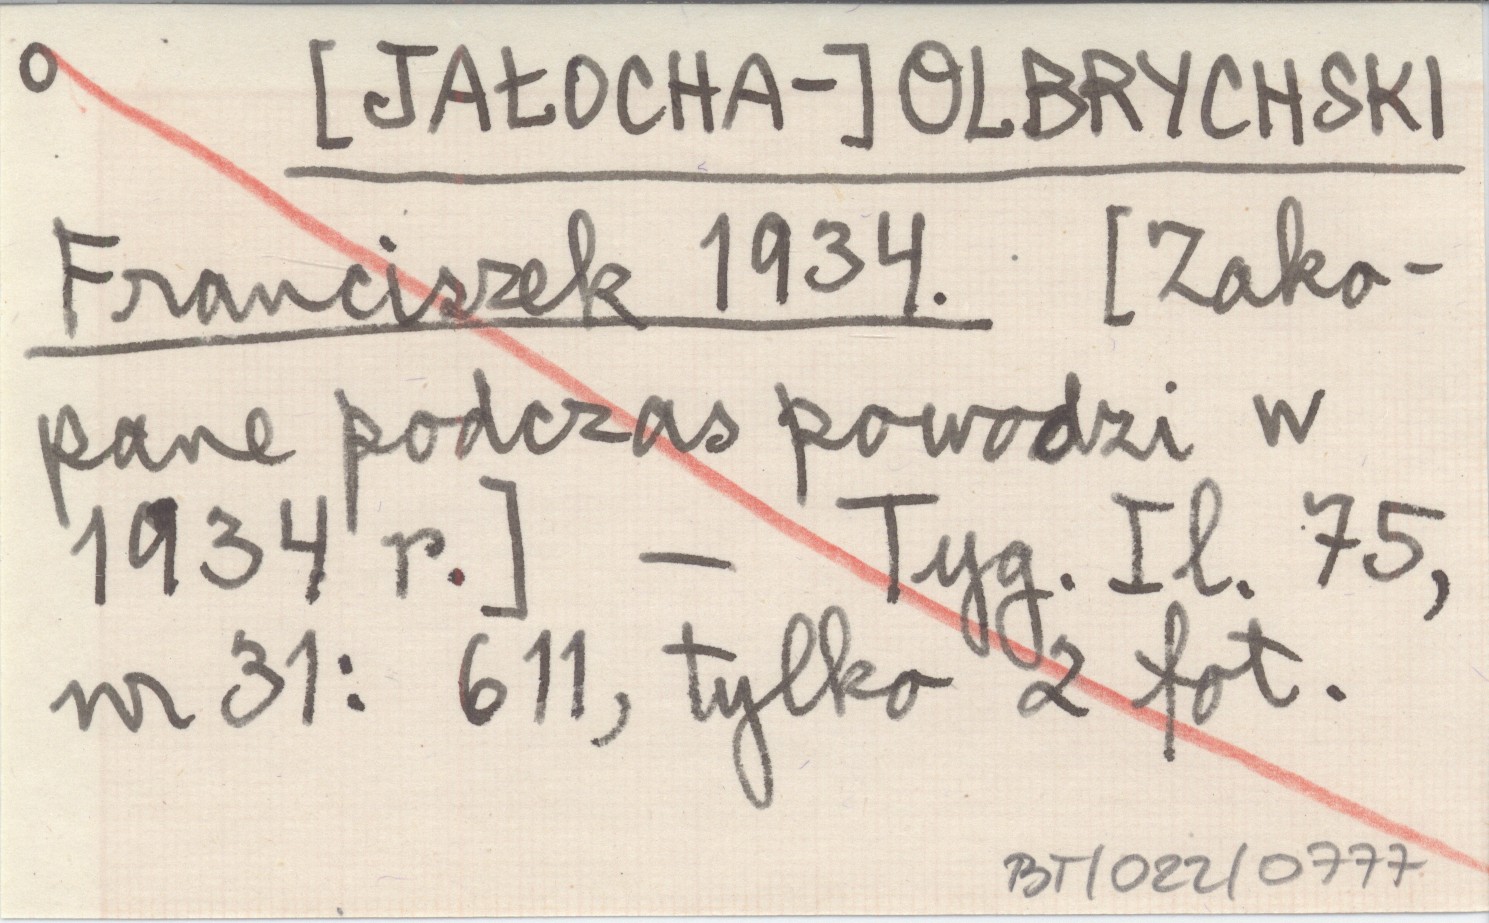 o [JAŁOCHA-] OLBRYCHSKI
Franciszek 1934. [Zako-
pane podczas powodzi w
1934 r.] — Tyg. Il. 75,
nr 31: 611, tylko 2 fot.
BT/022/0777